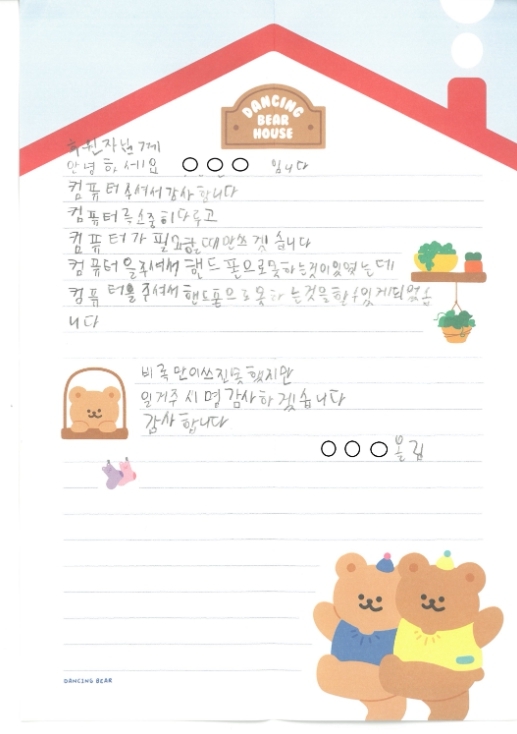 DANCING
BEAR
HOUSE
후원자님께
안녕하세요 ○○○ 입니다
컴퓨터 주셔서 감사합니다
컴퓨터를 소중히 다루고
컴퓨터가 필요할 때만 쓰겟습니다
컴퓨터을 주셔서 핸드폰으로 못하는것이 있었는데
컴퓨터를 주셔서 핸드폰으로 못하는것을 할수있게되었습
니다
비록 많이 쓰진 못했지만
일거주시명 감사하겠습니다
감사합니다
○○○ 올림
DANCING BEAR